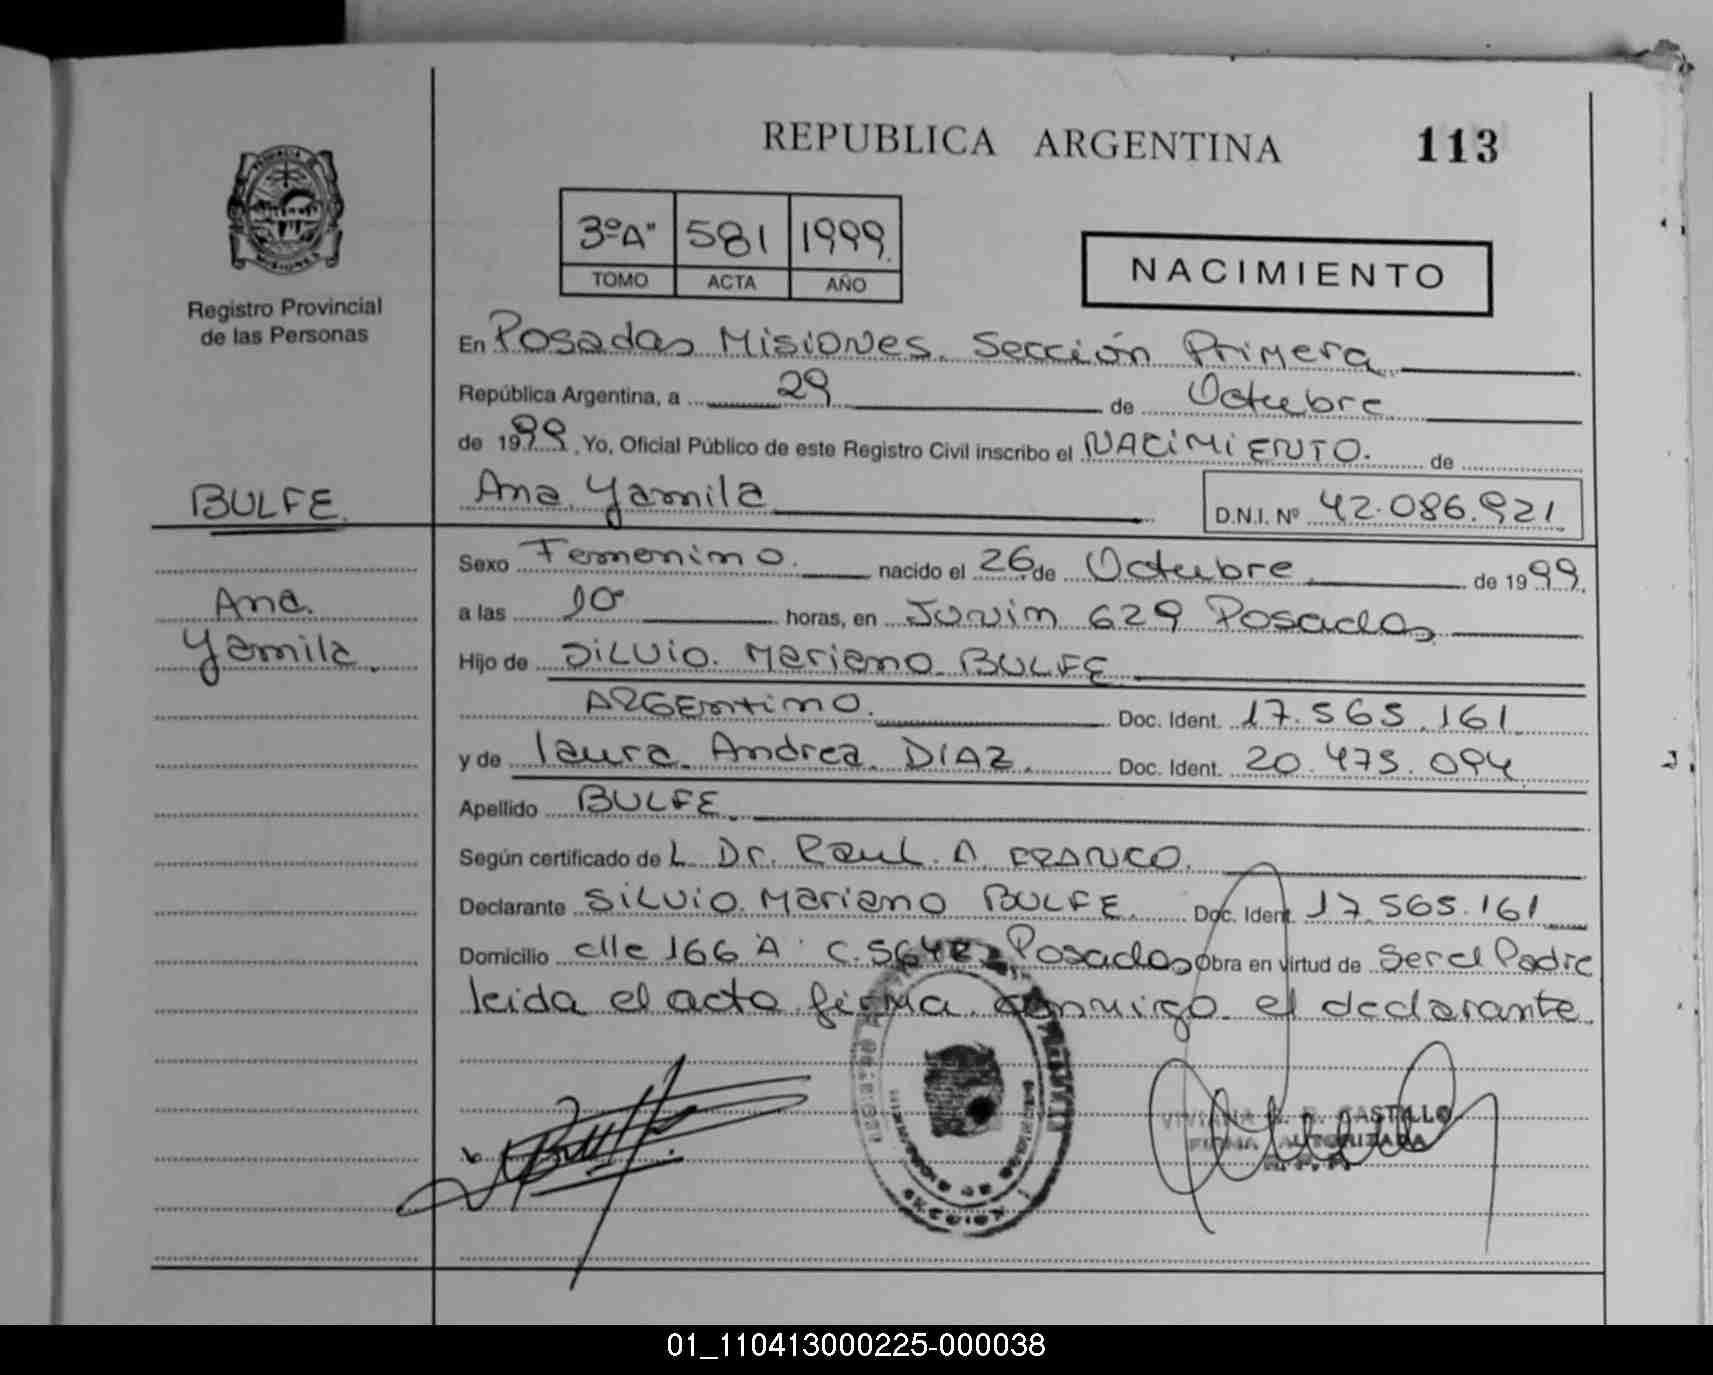 REPUBLICA ARGENTINA 113
PROVINCIA DE
MISIONES
Registro Provincial
de las Personas
3º"A" 581 1999
TOMO ACTA AÑO
NACIMIENTO
En Posadas Misiones. Sección Primera
República Argentina, a 29 de Octubre
de 1999. Yo, Oficial Público de este Registro Civil inscribo el NACIMIENTO. de
BULFE. Ana Yamila D.N.I. Nº 42.086.921
Sexo Femenino. nacido el 26 de Octubre de 1999.
Ana. a las 10 horas, en Junin 629 Posadas
Yamila. Hijo de SILVIO. Mariano BULFE
ARGENtino. Doc. Ident. 17.565.161
y de laura Andrea DIAZ. Doc. Ident. 20.475.094
Apellido BULFE
Según certificado de L Dr. Raul. A. FRANCO.
Declarante SILVIO. Mariano BULFE. Doc. Ident. 17.565.161
Domicilio clle 166 A Posadas Obra en virtud de Ser el Padre
leida el acto firma conmigo el declarante.
VIVIANA CASTILLO
FIRMA AUTORIZADA
SECCION
01_110413000225-000038